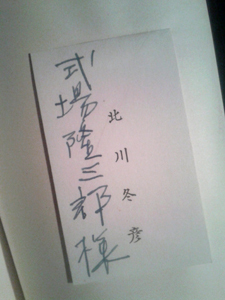 北川冬彦
式場隆三郎様